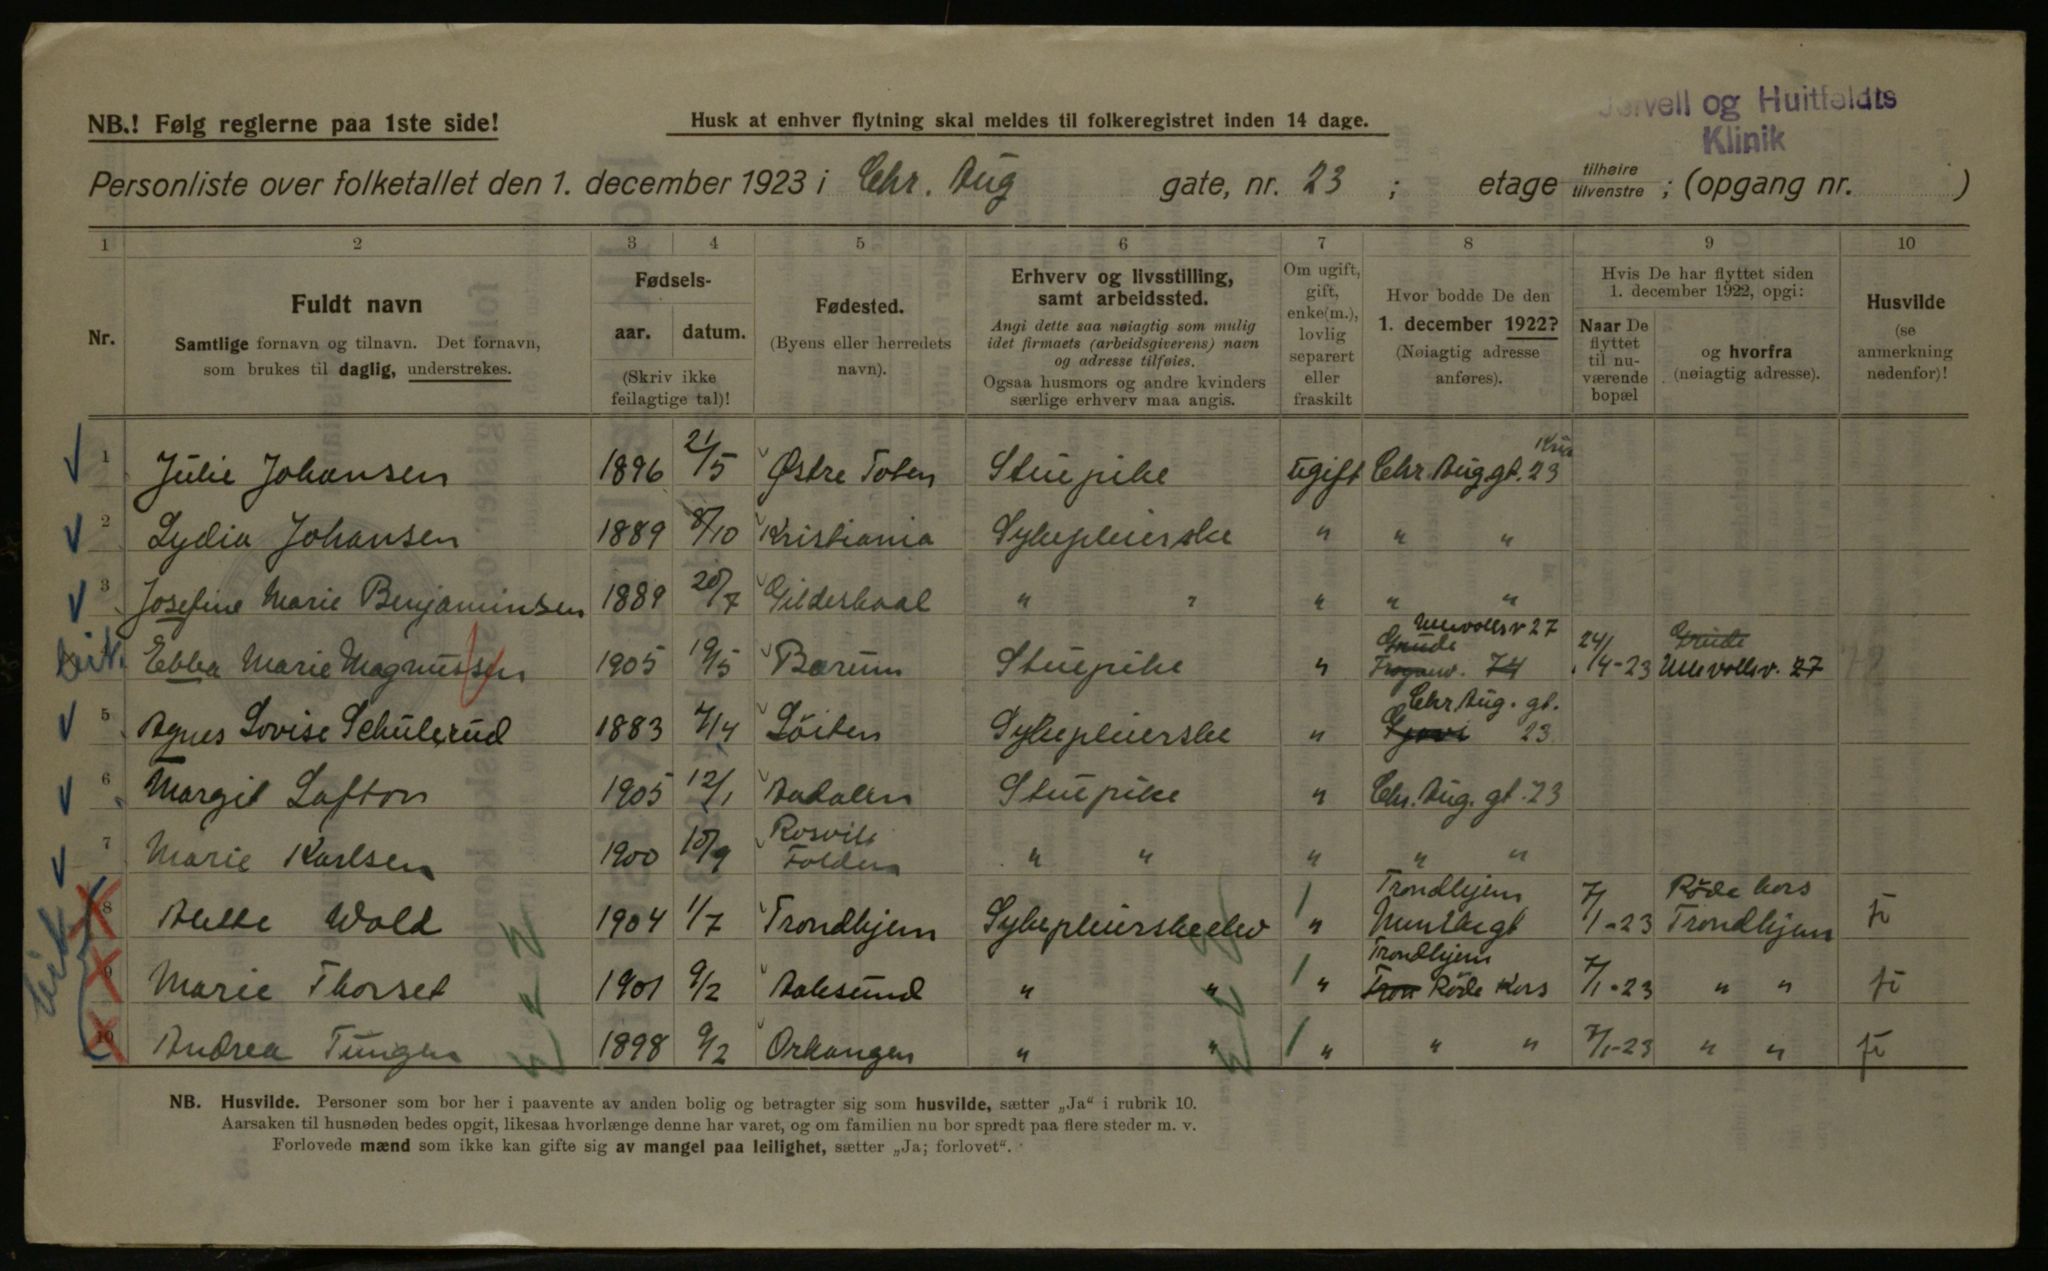 Jervell og Huitfeldts
Klinik
NB.! Følg reglerne paa 1ste side!
Husk at enhver flytning skal meldes til folkeregistret inden 14 dage.
Personliste over folketallet den 1. december 1923 i Chr. Aug gate, nr. 23 ; etage tilhøire tilvenstre ; (opgang nr. )
1 2 3 4 5 6 7 8 9 10
Nr.
Fuldt navn
Samtlige fornavn og tilnavn. Det fornavn,
som brukes til daglig, understrekes.
Fødsels-
aar. datum.
(Skriv ikke
feilagtige tal)!
Fødested.
(Byens eller herredets
navn).
Erhverv og livsstilling,
samt arbeidssted.
Angi dette saa nøiagtig som mulig
idet firmaets (arbeidsgiverens) navn
og adresse tilføies.
Ogsaa husmors og andre kvinders
særlige erhverv maa angis.
Om ugift,
gift,
enke(m.),
lovlig
separert
eller
fraskilt
Hvor bodde De den
1. december 1922?
(Nøiagtig adresse
anføres).
Hvis De har flyttet siden
1. december 1922, opgi:
Naar De
flyttet
til nu-
værende
bopæl
og hvorfra
(nøiagtig adresse).
Husvilde
(se
anmerkning
nedenfor)!
1 Julie Johansen 1896 21/5 Østre Toten Stuepike ugift Chr. Aug gt. 23
2 Lydia Johansen 1889 8/10 Kristiania Sykepleierske " " "
3 Josefine Marie Benjaminsen 1889 20/7 Gildeskaal " " " " "
Ullevollsv 27
Ebba Marie Magnussen 1905 19/5 Bærum Stuepike " 74 24/4-23 Ullevollsv. 27
Chr Aug. gt.
5 Agnes Lovise Schulerud 1883 7/4 Löiten Sykepleierske " 23
6 Margit Lafton 1905 12/1 Aadalen Stuepike " Chr. Aug. gt. 23
7 Marie Karlsen 1900 10/9 Folden " " " " "
Trondhjem Røde kors
8 Wold 1904 1/7 Trondhjem Sykepleierskeelev " 7/1-23 Trondhjem
Trondhjem
9 Marie Thorset 1901 9/2 Aalesund " " " Røde Kors 7/1-23 " "
10 Andrea Tungen 1898 9/2 Orkangen " " " " " 7/1-23 " "
NB. Husvilde. Personer som bor her i paavente av anden bolig og betragter sig som husvilde, sætter „Ja“ i rubrik 10.
Aarsaken til husnøden bedes opgit, likesaa hvorlænge denne har varet, og om familien nu bor spredt paa flere steder m. v.
Forlovede mænd som ikke kan gifte sig av mangel paa leilighet, sætter „Ja; forlovet“.